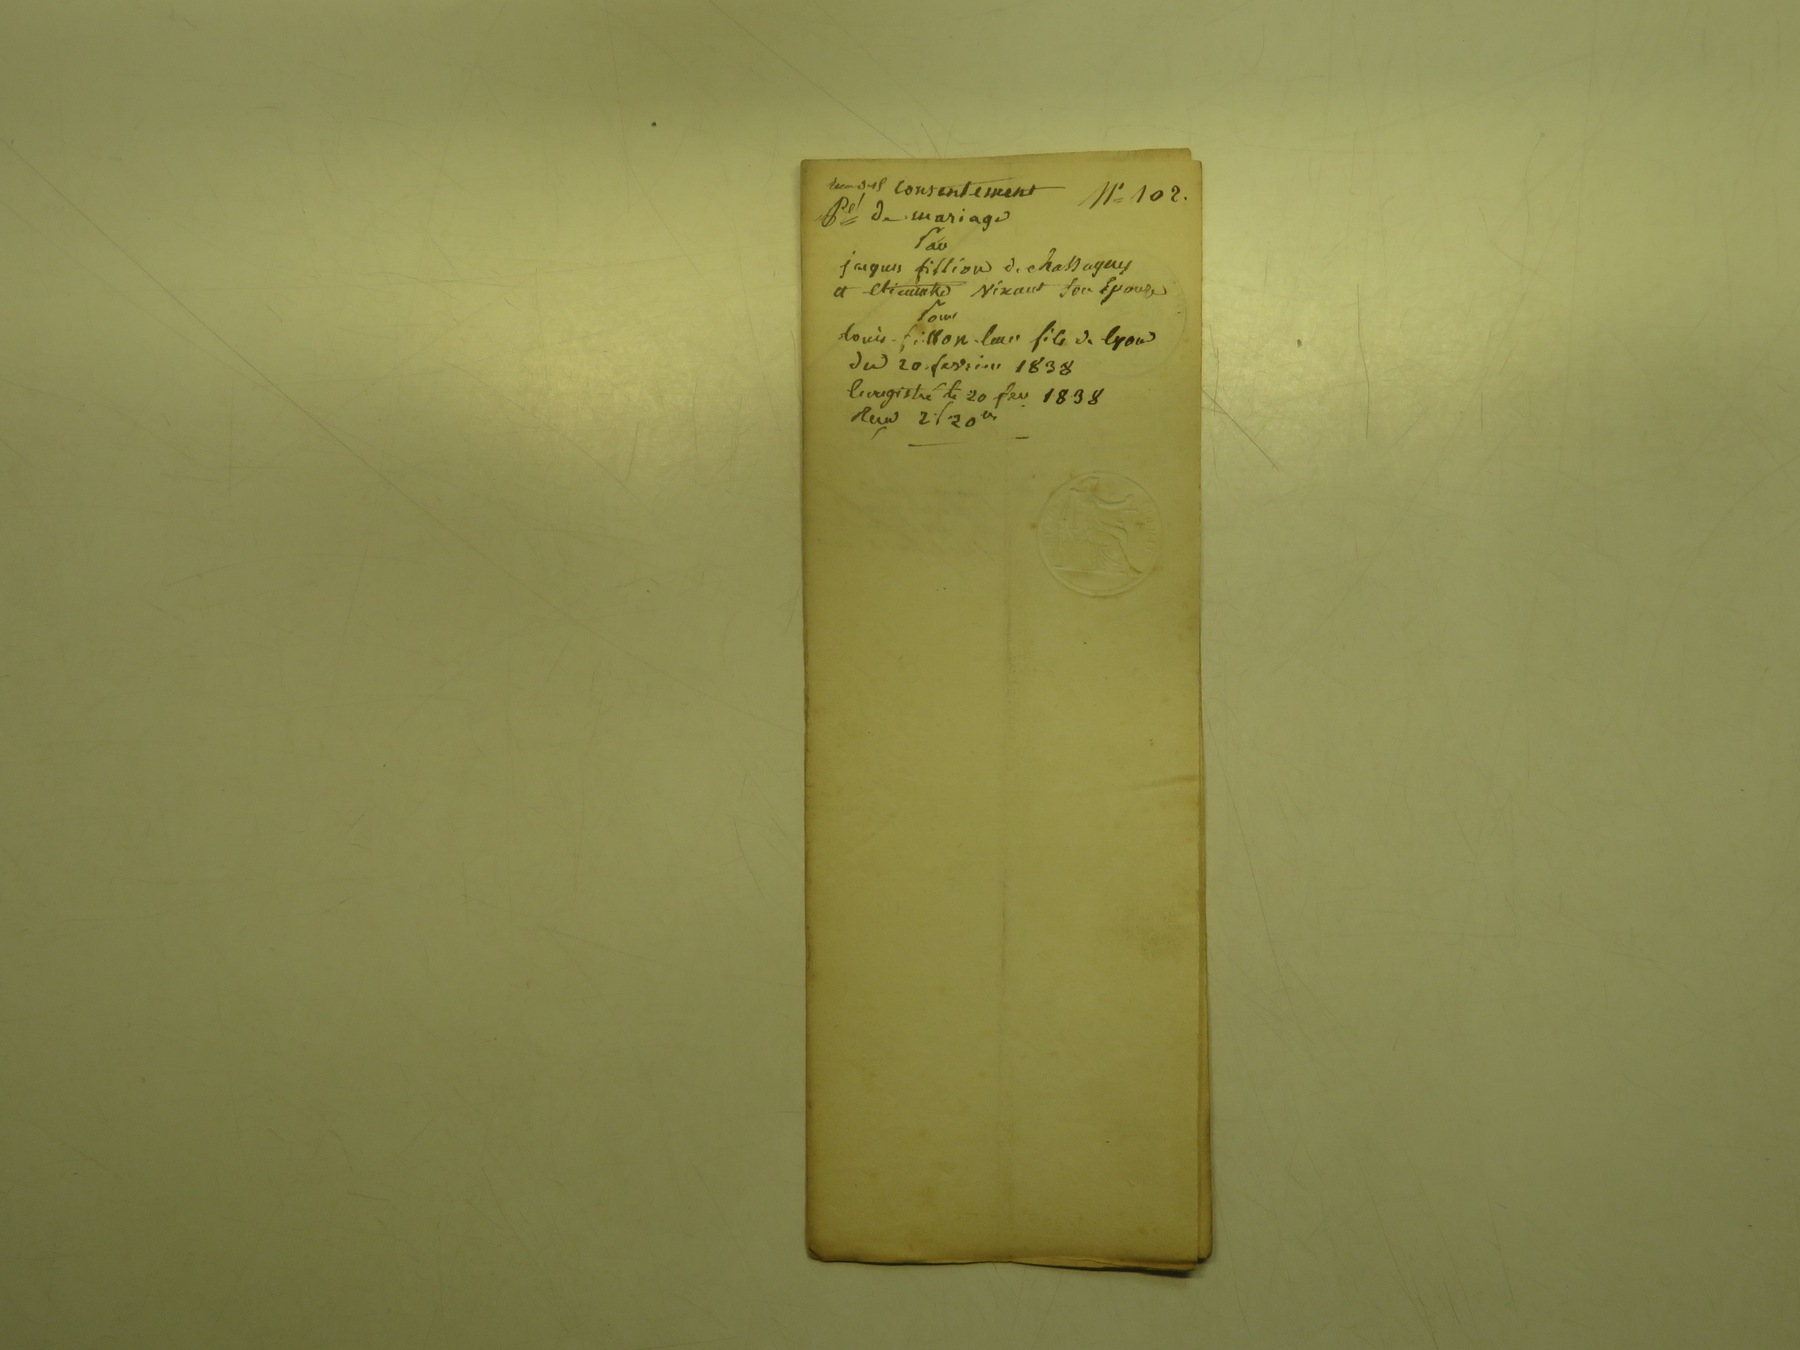 consentement N° 102.
de mariage
Par
jacques fillion de chassagny
et Vixant Son Epouse
Pour
louis fillion leur fils de lyon
du 20 fevrier 1838
Enregistré le 20 fev 1838
Reçu 2f 20